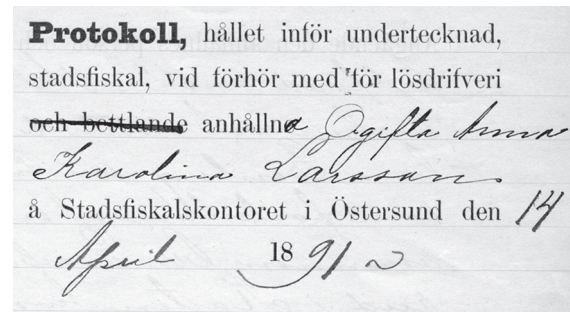 Protokoll, hållet inför undertecknad,
stadsfiskal, vid förhör med för lösdrifveri
och bettlande anhållna Ogifta Anna
Karolina Larsson
å Stadsfiskalskontoret i Östersund den 14
April 1891